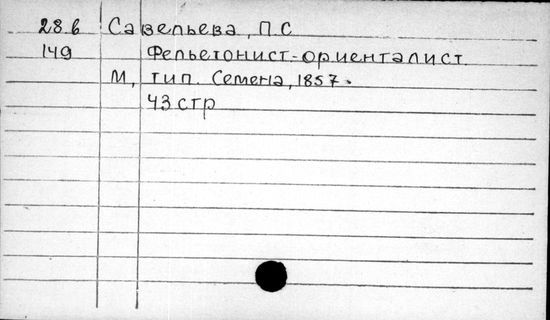 28.6 Савельева, П.С
149 Фельетонист-ориенталист.
М, тип. Семена, 1857.
43 стр